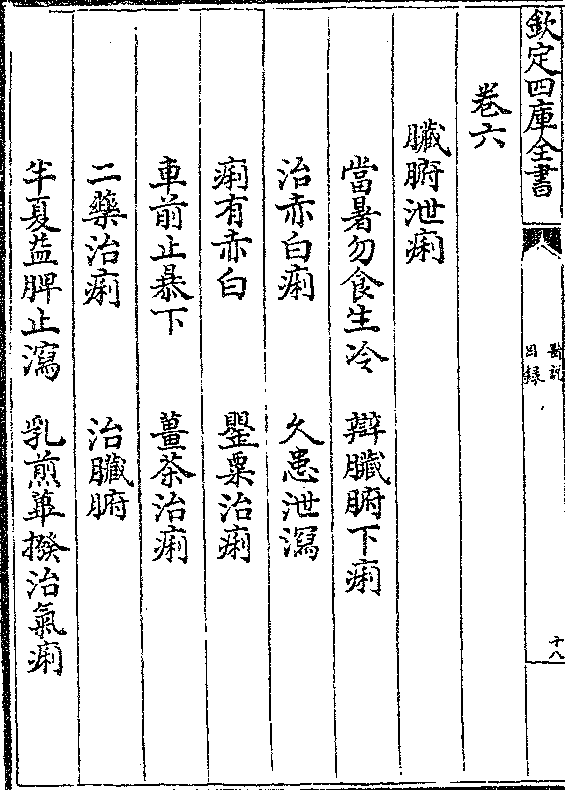 欽定四庫全書
醫說
目錄
十八
卷六
臟腑泄痢
當暑勿食生冷 辯臟腑下痢
治赤白痢 久患泄瀉
痢有赤白 罌粟治痢
車前止暴下 薑茶治痢
二藥治痢 治臟腑
半夏益脾止瀉 乳煎蓽撥治氣痢